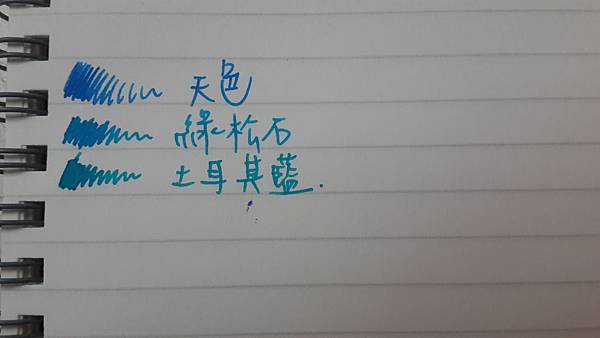 天色
綠松石
土耳其藍.